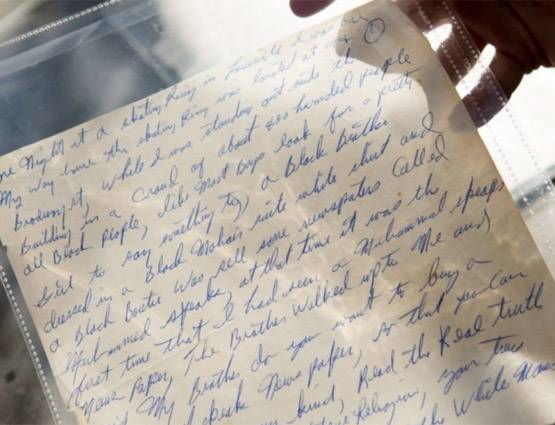 one Night at a skating Ring in Louisville I was on
①
My way home the skating Ring was located at
Broadway st, while I was standing out side the
Building in a Croud of about 200 hundred people
all Black people, like Most Boys look for a pretty
Girl to say something to, a Black Brother
dressed in a Black Mohair suite white shirt and
a Black Bowtie was sell some newspapers Called
Muhammad speaks, at that time it was the
first time that I had seen a Muhammad speaks
News Paper, The Brother Walked up to Me and
said My Brother do you want to buy a
speaks News paper, so that you can
kind, Read the Real truth
Religion, your true
the White Man